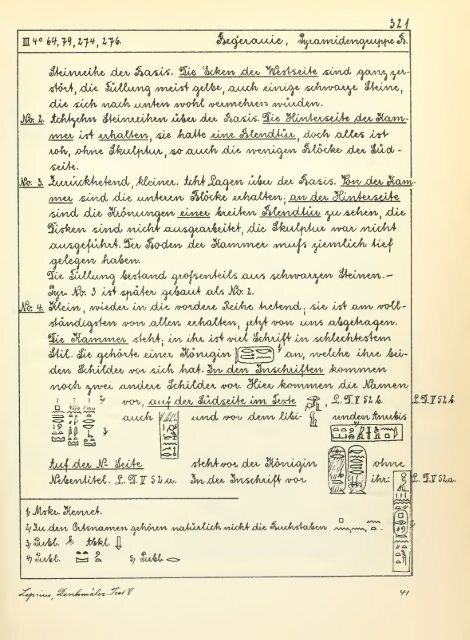 321
III 4° 64, 79, 274, 276. Begerauie, Pyramidengruppe B.
Steinreihe der Basis. Die Ecken der Westseite sind ganz zer-
stört, die Füllung meist gelbe, auch einige schwarze Steine,
die sich nach unten wohl vermehren würden.
No. 2. Achtzehn Steinreihen über der Basis. Die Hinterseite der Kam-
mer ist erhalten, sie hatte eine Blendtür, doch alles ist
roh, ohne Skulptur, so auch die wenigen Blöcke der Süd-
seite.
No. 3. Zurücktretend, kleiner. Acht Lagen über der Basis. Von der Kam-
mer sind die unteren Blöcke erhalten; an der Hinterseite
sind die Krönungen einer breiten Blendtür zu sehen, die
Disken sind nicht ausgearbeitet, die Skulptur war nicht
ausgeführt. Der Boden der Kammer muſs ziemlich tief
gelegen haben.
Die Füllung bestand groſsenteils aus schwarzen Steinen.–
Pyr. No. 3 ist später gebaut als No. 2.
No. 4. Klein, wieder in die vordere Reihe tretend; sie ist am voll-
ständigsten von allen erhalten, jetzt von uns abgetragen.
Die Kammer steht; in ihr ist viel Schrift in schlechtestem
Stil. Sie gehörte einer Königin an, welche ihre bei-
den Schilder vor sich hat. In den Inschriften kommen
noch zwei andere Schilder vor. Hier kommen die Namen
vor, auf der Südseite im Texte L. D. V 52 b. L. D. V 52 b
auch und vor dem libi- renden Anubis
Auf der N.- Seite steht vor der Königin ohne
Nebentitel. L. D. V 52 a. In der Inschrift vor ihr: L. D. V 52 a.
1) Mskr. Kenret.
2) Zu den Ortsnamen gehören natürlich nicht die Buchstaben
3) Publ. Abkl.
4) Publ. 5) Publ.
Lepsius, Denkmäler. Text V 41